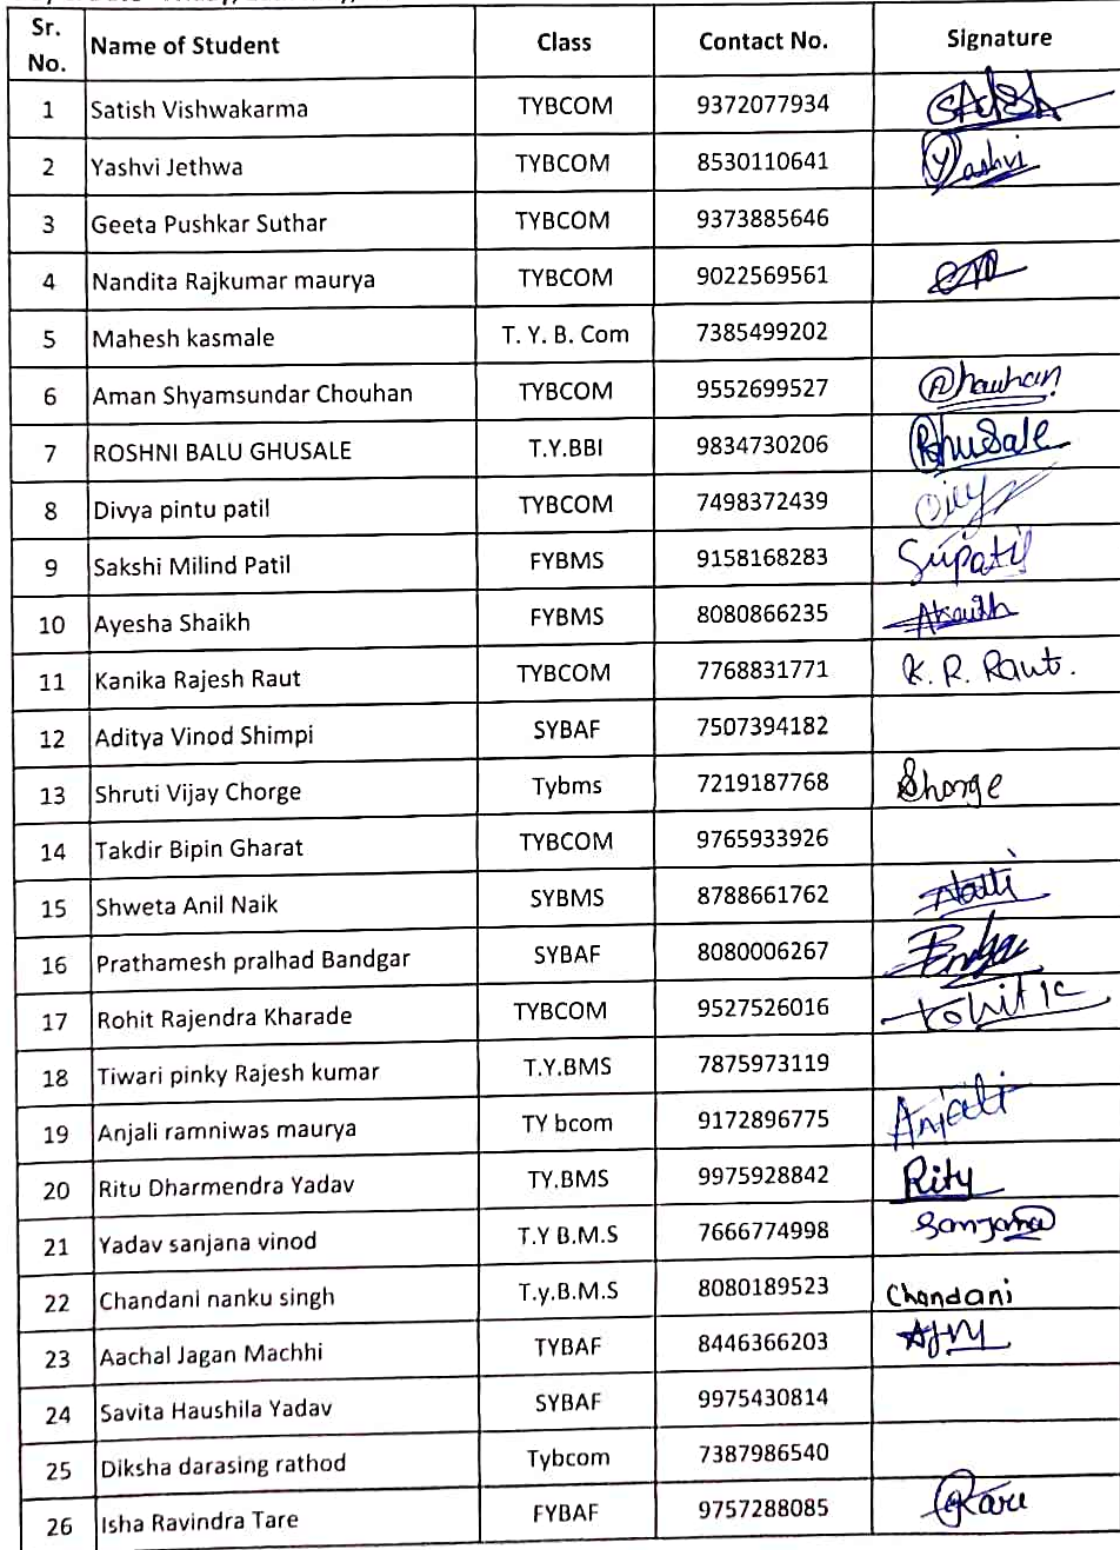 Sr. No. Name of Student Class Contact No. Signature
1 Satish Vishwakarma TYBCOM 9372077934
2 Yashvi Jethwa TYBCOM 8530110641 Yashvi
3 Geeta Pushkar Suthar TYBCOM 9373885646
4 Nandita Rajkumar maurya TYBCOM 9022569561
5 Mahesh kasmale T. Y. B. Com 7385499202
6 Aman Shyamsundar Chouhan TYBCOM 9552699527
7 ROSHNI BALU GHUSALE T.Y.BBI 9834730206
8 Divya pintu patil TYBCOM 7498372439
9 Sakshi Milind Patil FYBMS 9158168283
10 Ayesha Shaikh FYBMS 8080866235
11 Kanika Rajesh Raut TYBCOM 7768831771 K. R. Raut.
12 Aditya Vinod Shimpi SYBAF 7507394182
13 Shruti Vijay Chorge Tybms 7219187768
14 Takdir Bipin Gharat TYBCOM 9765933926
15 Shweta Anil Naik SYBMS 8788661762
16 Prathamesh pralhad Bandgar SYBAF 8080006267
17 Rohit Rajendra Kharade TYBCOM 9527526016
18 Tiwari pinky Rajesh kumar T.Y.BMS 7875973119
19 Anjali ramniwas maurya TY bcom 9172896775 Anjali
20 Ritu Dharmendra Yadav TY.BMS 9975928842
21 Yadav sanjana vinod T.Y B.M.S 7666774998 Sanjana
22 Chandani nanku singh T.y.B.M.S 8080189523 Chandani
23 Aachal Jagan Machhi TYBAF 8446366203
24 Savita Haushila Yadav SYBAF 9975430814
25 Diksha darasing rathod Tybcom 7387986540
26 Isha Ravindra Tare FYBAF 9757288085